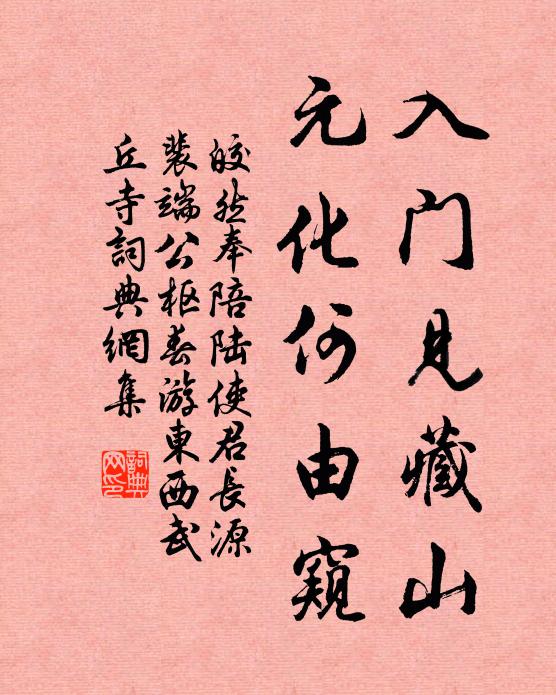 入门見藏山
元化何由窺
皎然奉陪陸使君長源
裴端公枢春游東西武
丘寺詞典網集
詞典网印